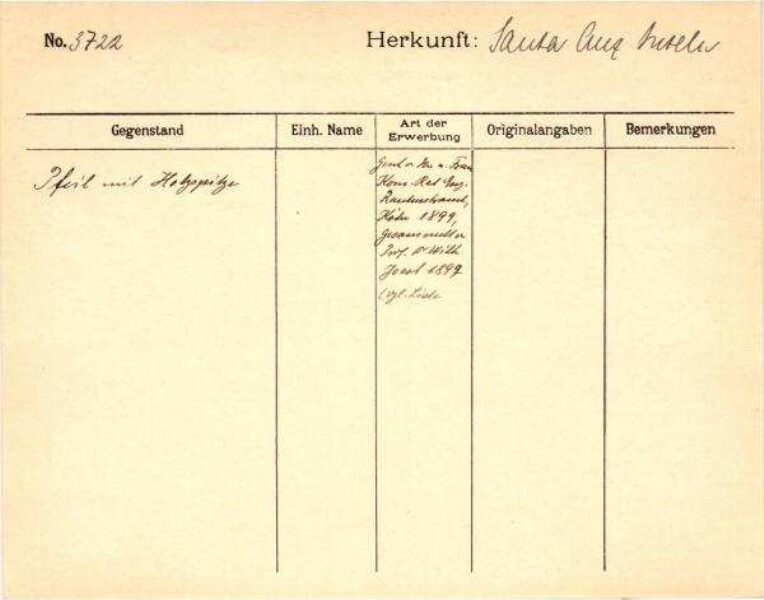 No. 3722
Herkunft: Santa Cruz Inseln
Gegenstand
Einh. Name
Art der Erwerbung
Originalangaben
Bemerkungen
Pfeil mit Holzspitze
Gesch. v. Hr. u. Frau
Kom. Rat Eug.
Rautenstrauch,
Köln 1899,
gesammelt v.
Prof. Dr Wilh.
Joest 1897
(vgl. Liste